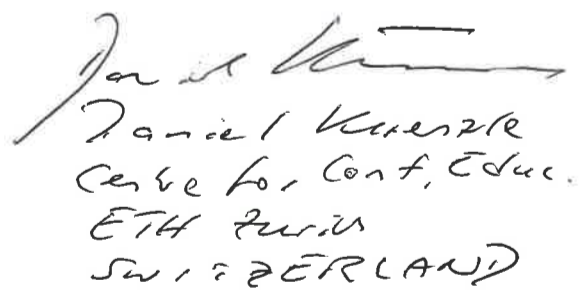 Daniel K
Daniel Kuenzle
Centre for Cont. Educ.
ETH Zurich
SWITZERLAND